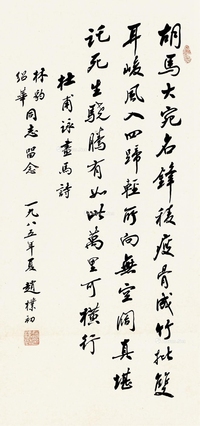 胡馬大宛名鋒稜瘦骨成竹批雙
耳峻風入四蹄輕所向無空闊真堪
託死生驍騰有如此萬里可橫行
杜甫詠畫馬詩
林
紹華同志留念
一九八五年夏 趙樸初